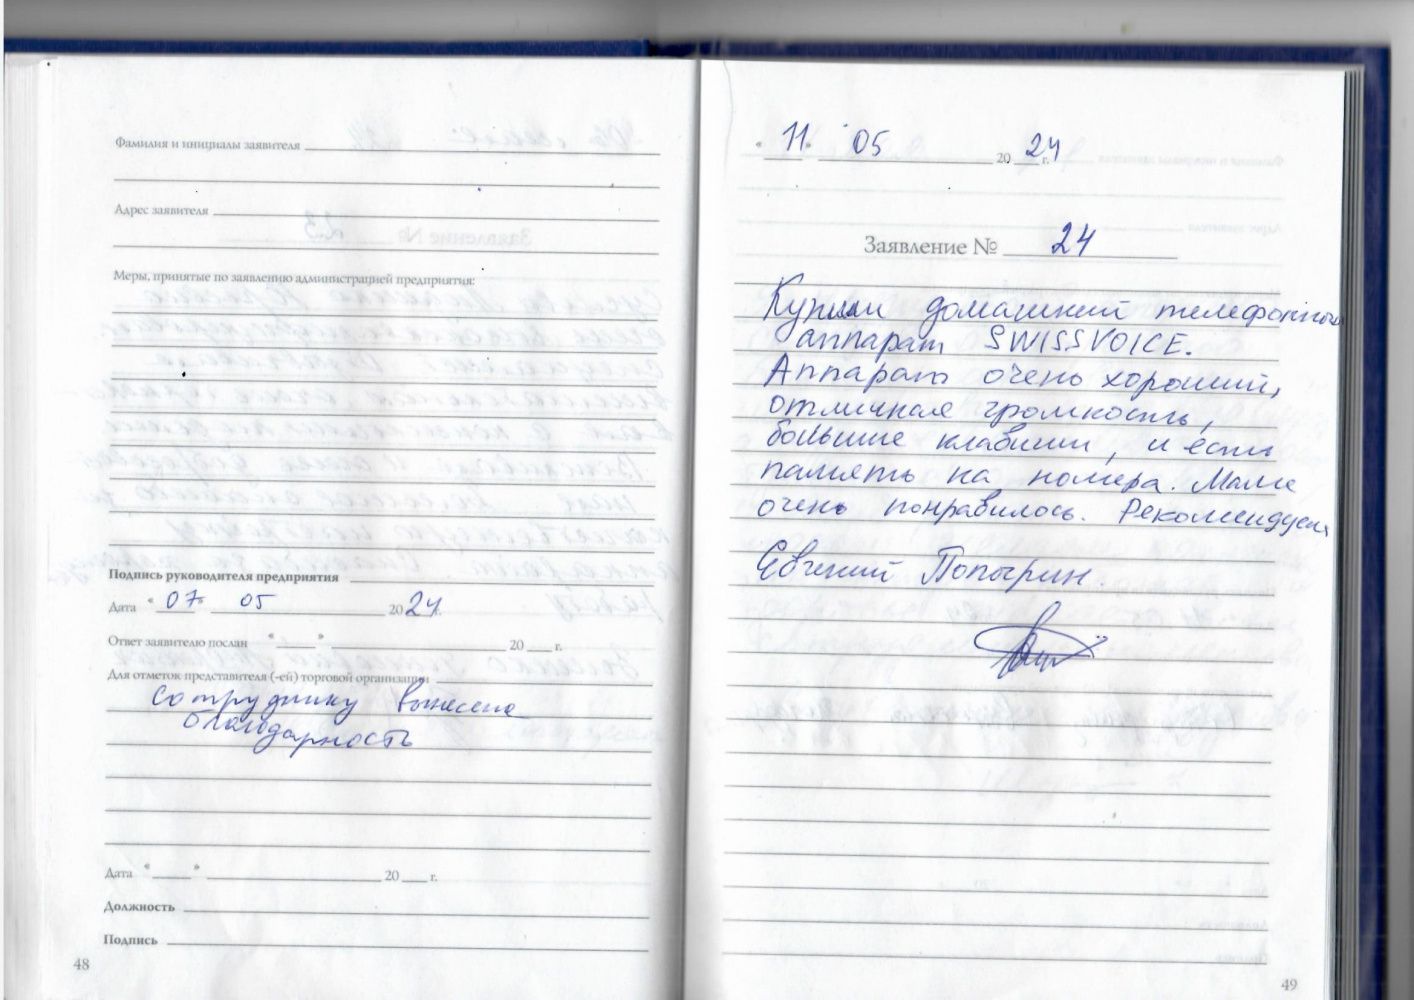 Фамилия и инициалы заявителя
Адрес заявителя
Меры, принятые по заявлению администрацией предприятия:
Подпись руководителя предприятия
Дата "07" 05 2024 г.
Ответ заявителю послан " " 20 г.
Для отметок представителя (-ей) торговой организации
Сотруднику вынесена
благодарность
Дата " " 20 г.
Должность
Подпись
48
"11" 05 2024 г.
Заявление № 24
Купили домашний телефонный
аппарат SWISSVOICE.
Аппарат очень хороший,
отличная громкость,
большие клавиши, и есть
память на номера. Маме
очень понравилось. Рекомендуем
Евгений Попырин.
49